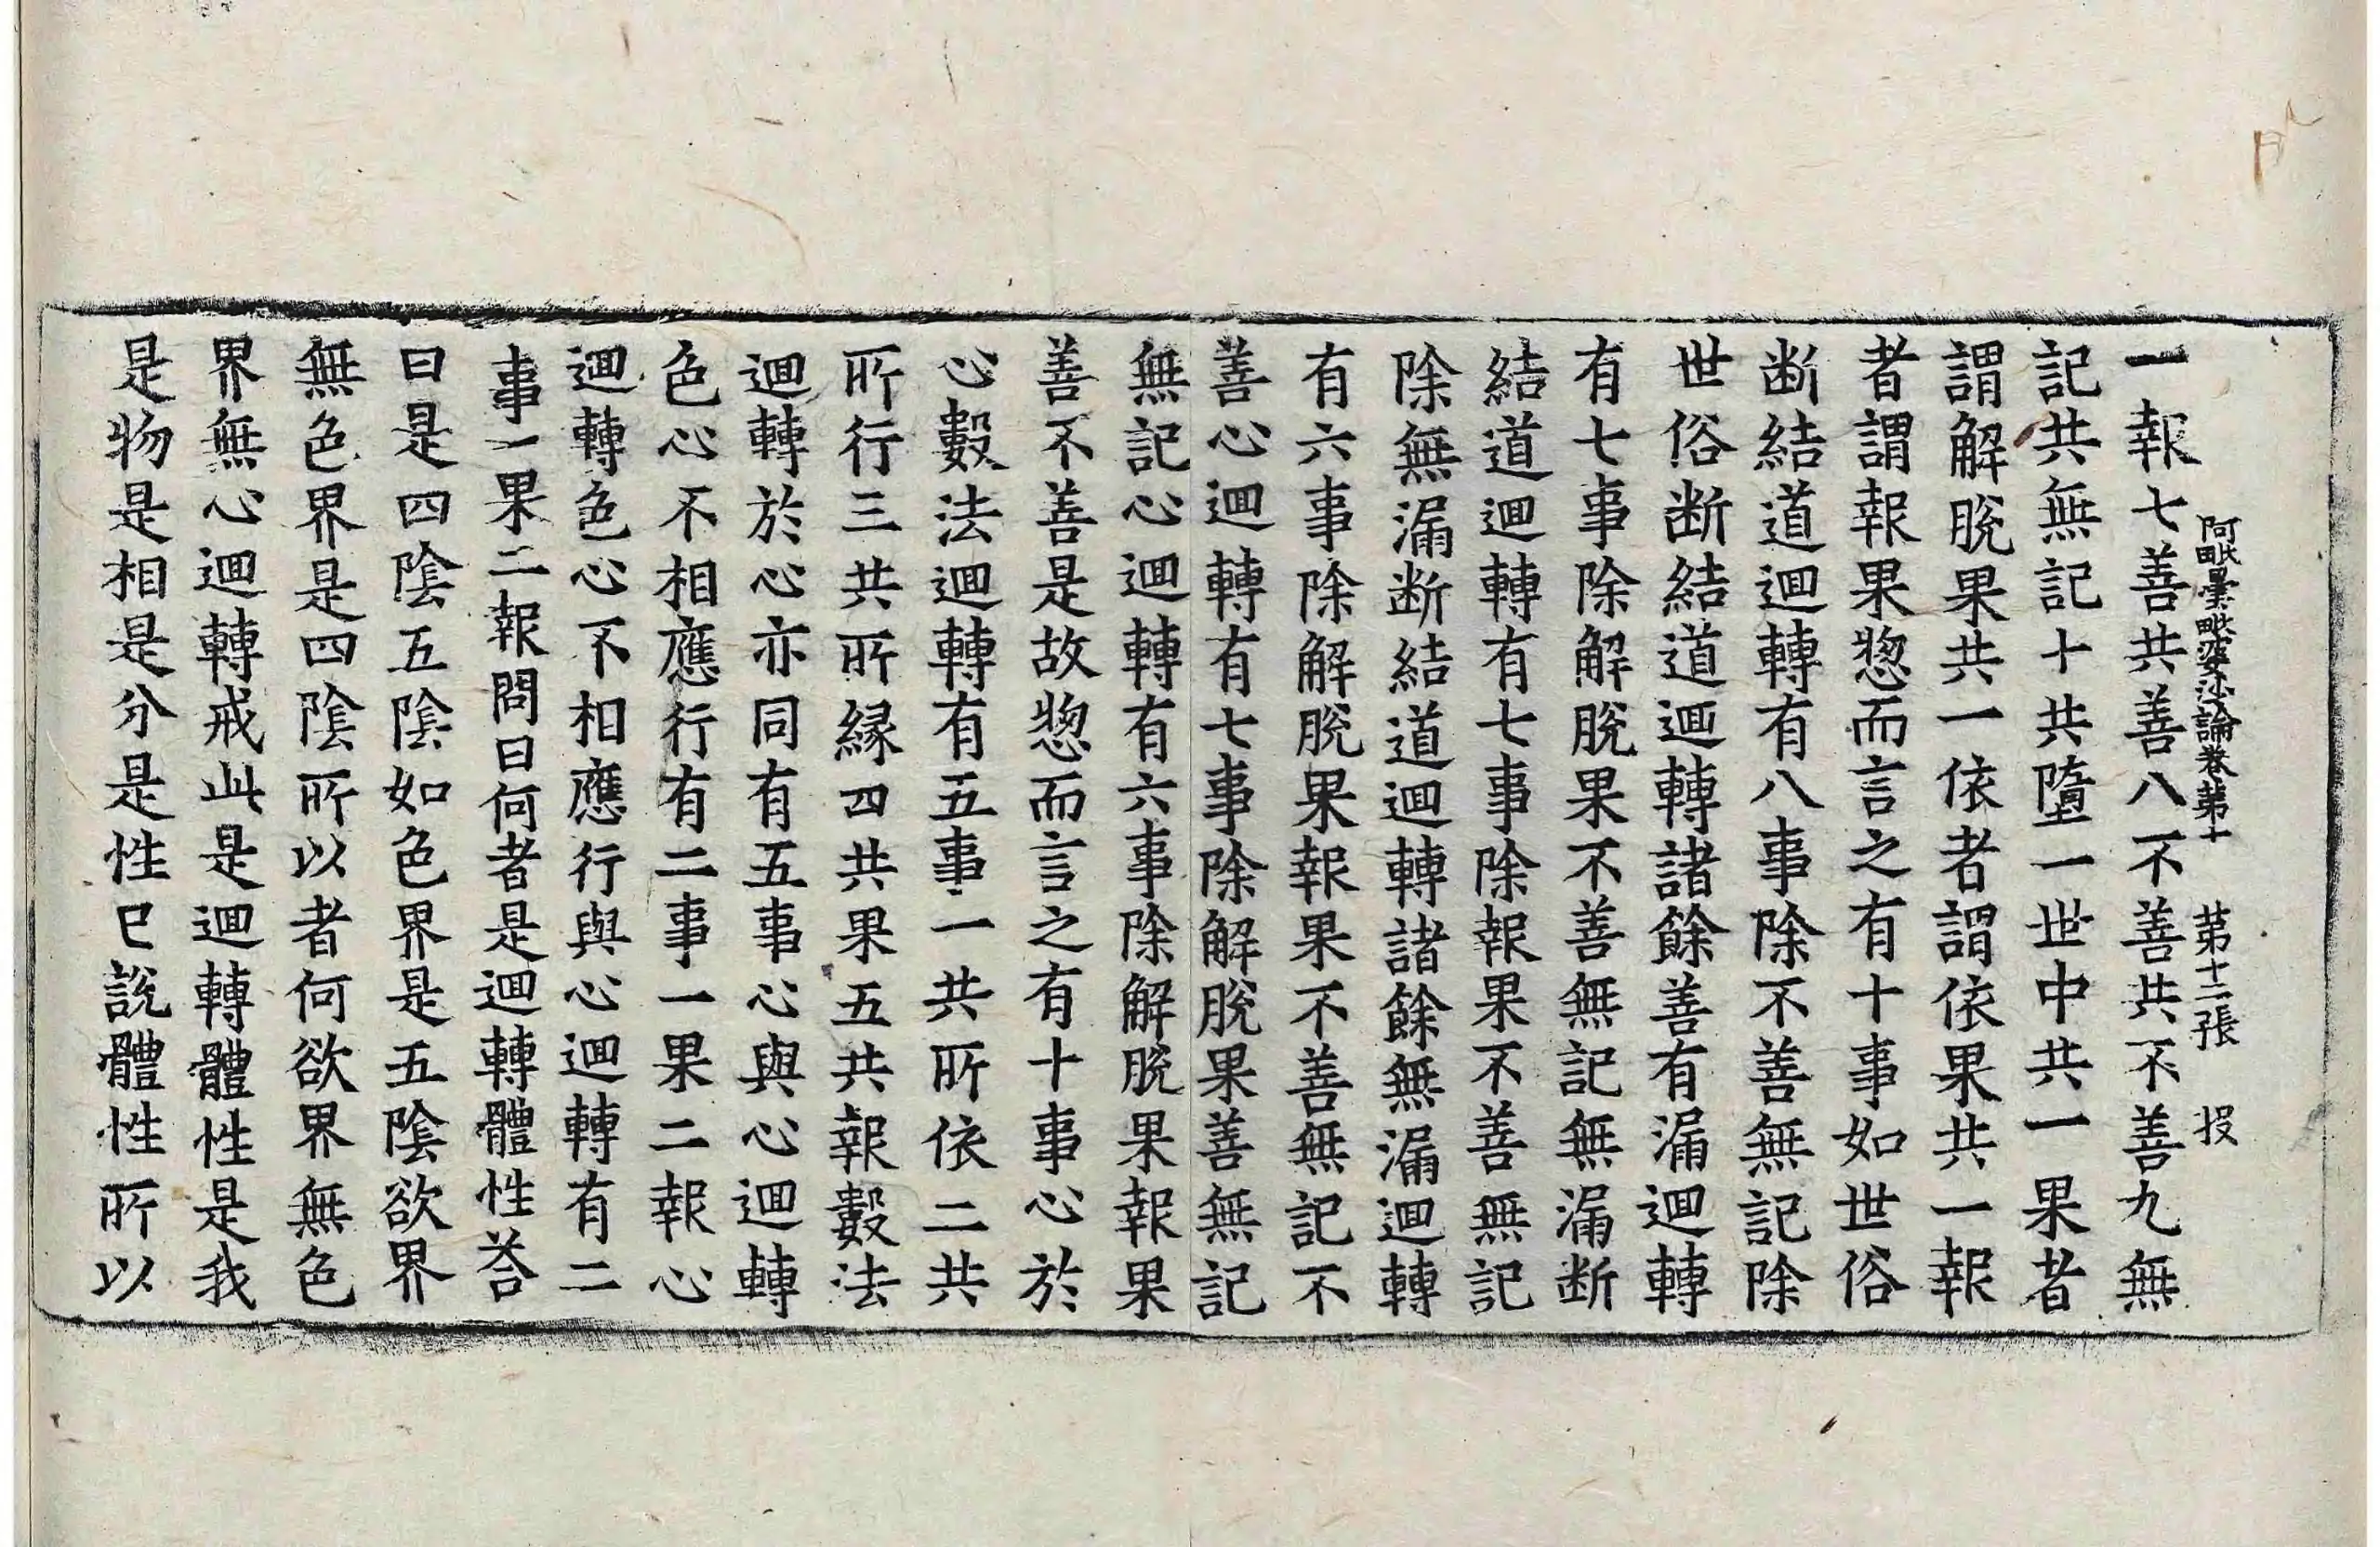 阿毗曇毗婆沙論卷苐十　苐十二張　投
一報七善共善八不善共不善九無
記共無記十共墮一世中共一果者
謂解脫果共一依者謂依果共一報
者謂報果惣而言之有十事如世俗
断結道迴轉有八事除不善無記除
世俗断結道迴轉諸餘善有漏迴轉
有七事除解脫果不善無記無漏断
結道迴轉有七事除報果不善無記
除無漏断結道迴轉諸餘無漏迴轉
有六事除解脫果報果不善無記不
善心迴轉有七事除解脫果善無記
無記心迴轉有六事除解脫果報果
善不善是故惣而言之有十事心於
心數法迴轉有五事一共所依二共
所行三共所縁四共果五共報數法
迴轉於心亦同有五事心與心迴轉
色心不相應行有二事一果二報心
迴轉色心不相應行與心迴轉有二
事一果二報問曰何者是迴轉體性荅
曰是四陰五陰如色界是五陰欲界
無色界是四陰所以者何欲界無色
界無心迴轉戒此是迴轉體性是我
是物是相是分是性已說體性所以